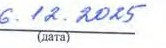 6.12.2025
(дата)